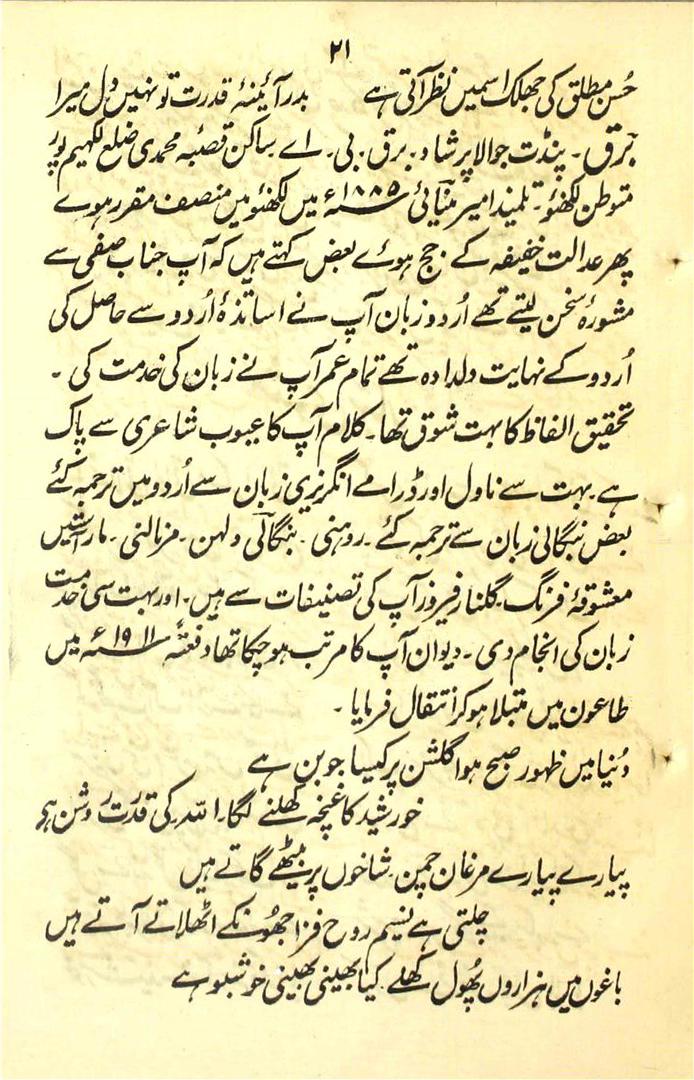 ۲۱
حُسن مطلق کی جھلک اسمیں نظر آتی ہے بدر آئینۂ قدرت تو نہیں دل میرا
برق۔ پنڈت جوالا پرشاد۔ برق۔ بی۔ اے ساکن قصبہ محمدی ضلع لکھیم پور
متوطن لکھنؤ۔ تلمیذ امیر مینائی ۱۸۸۵ء میں لکھنؤ میں منصف مقرر ہوے
پھر عدالت خفیفہ کے جج ہوئے بعض کہتے ہیں کہ آپ جناب صفی سے
مشورۂ سخن لیتے تھے اُردو زبان آپ نے اساتذۂ اُردو سے حاصل کی
اُردو کے نہایت دلدادہ تھے تمام عمر آپ نے زبان کی خدمت کی ۔
تحقیق الفاظ کا بہت شوق تھا۔ کلام آپ کا عیوب شاعری سے پاک
ہے بہت سے ناول اور ڈرامے انگریزی زبان سے اُردو میں ترجمہ کئے
بعض بنگالی زبان سے ترجمہ کئے۔ روہنی۔ بنگالی دلہن۔ مرنالنی۔ مار آستیں
معشوقۂ فرنگ۔ گلنار فیروز آپ کی تصنیفات سے ہیں۔ اور بہت سی خدمت
زبان کی انجام دی۔ دیوان آپ کا مرتب ہو چکا تھا دفعتہً ۱۹۱۱ء میں
طاعون میں مبتلا ہو کر انتقال فرمایا ۔
دُنیا میں ظہور صبح ہوا گلشن پر کیسا جوبن ہے
خورشید کا غنچہ کھلنے لگا۔ اللہ کی قدرت روشن ہی
پیارے پیارے مرغان چمن شاخوں پر بیٹھے گاتے ہیں
چلتی ہے نسیم روح فزا جھونکے اٹھلاتے آتے ہیں
باغوں میں ہزاروں پھول کھلے کیا بھینی بھینی خوشبو ہے